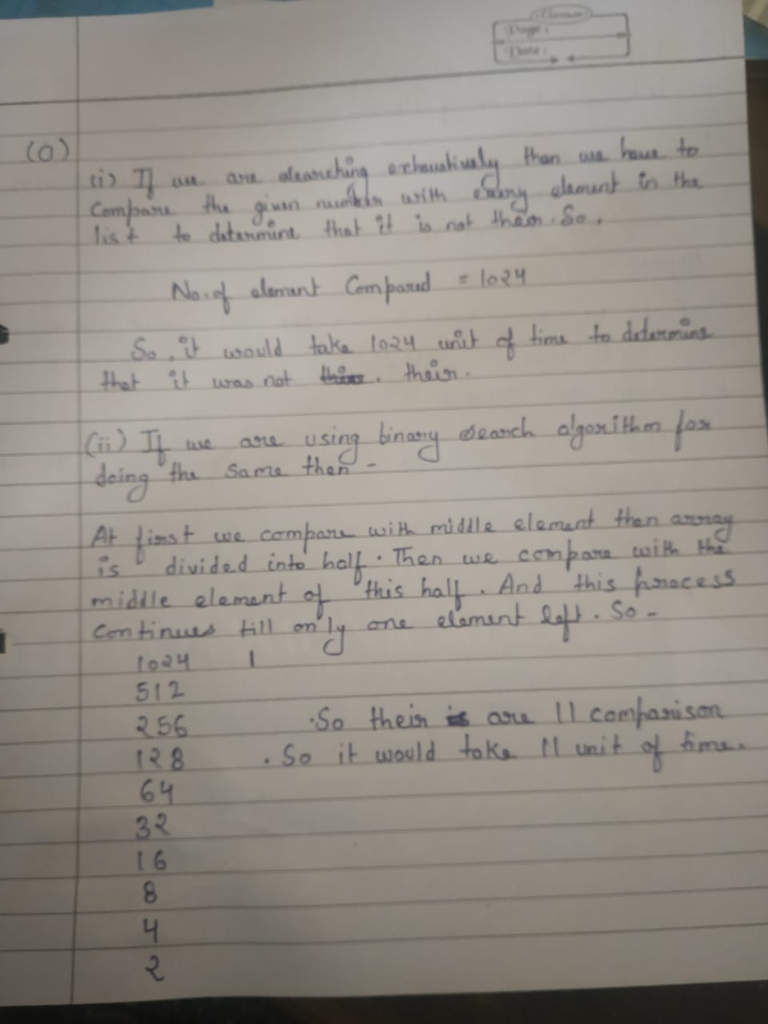 Classmate
Page :
Date :
(0)
(i) If we are searching exhaustively than we have to
Compare the given number with every element in the
list to determine that it is not their. So,
No. of element Compared = 1024
So, it would take 1024 unit of time to determine
that it was not their.
(ii) If we are using binary search algorithm for
doing the same then -
At first we compare with middle element then array
is divided into half. Then we compare with the
middle element of this half. And this process
continues till only one element left. So -
1024 1
512
256 .So their are 11 comparison
128 . So it would take 11 unit of time.
64
32
16
8
4
2